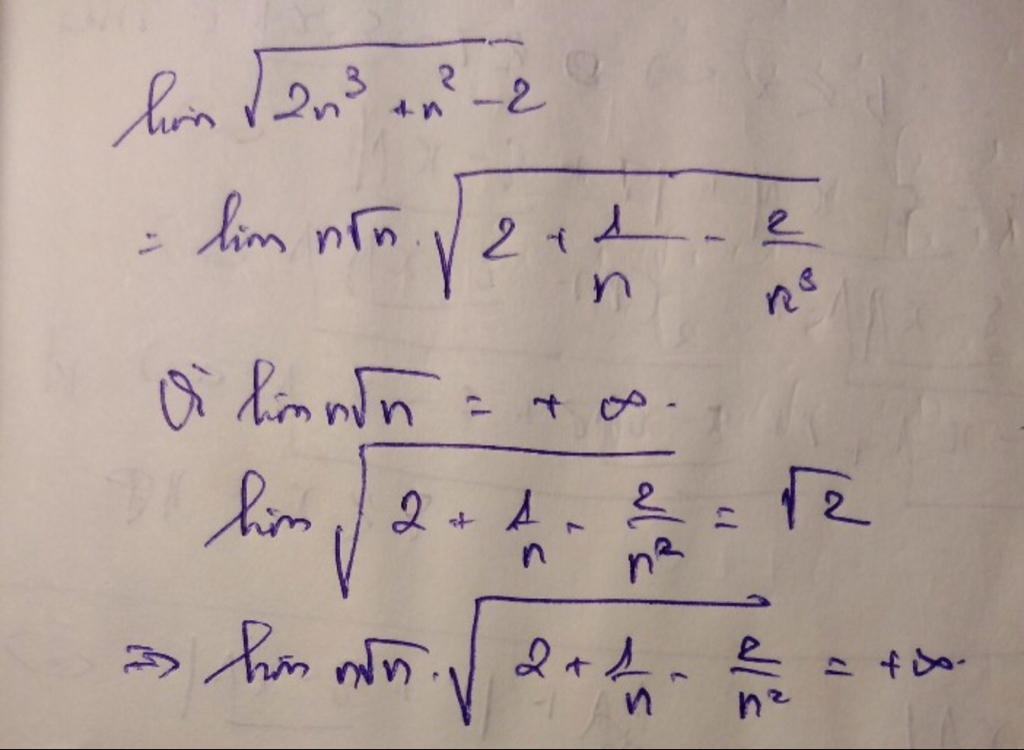 lim √(2n³ + n² - 2)
= lim n√n . √(2 + 1/n - 2/n³)
Vì lim n√n = + ∞.
lim √(2 + 1/n - 2/n²) = √2
⇒ lim n√n . √(2 + 1/n - 2/n²) = +∞.